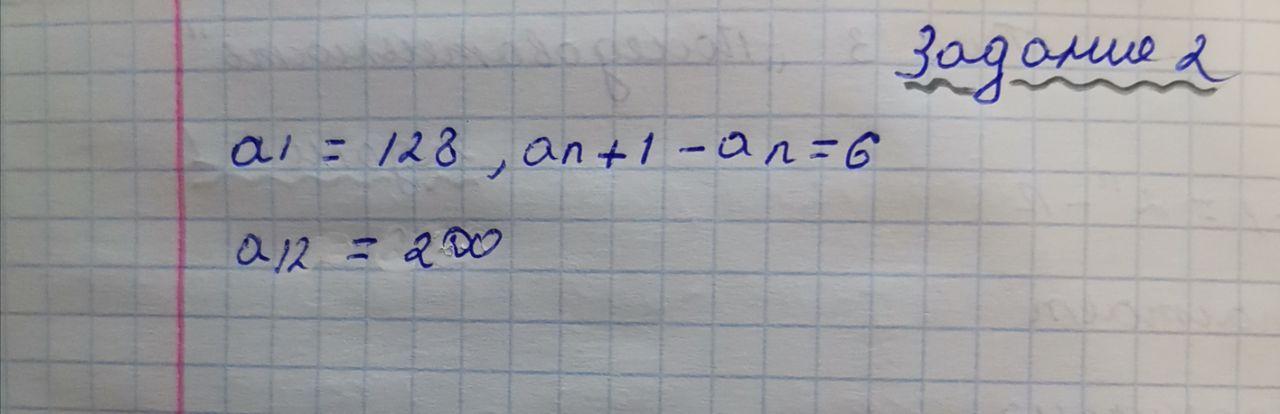 Задание 2
a1 = 128, an+1 - an = 6
a12 = 200